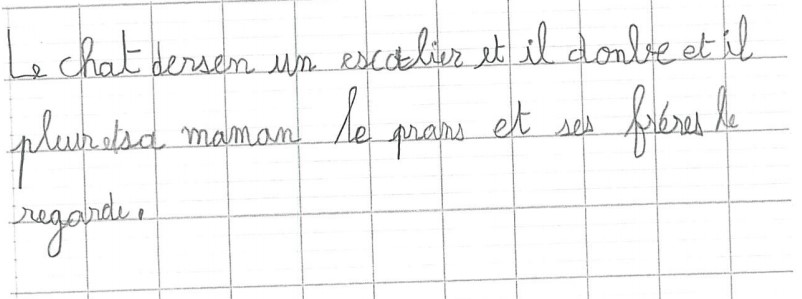 Le chat dersen un escalier et il donbe et il
plur et sa maman le prans et ses fréres le
regarde.